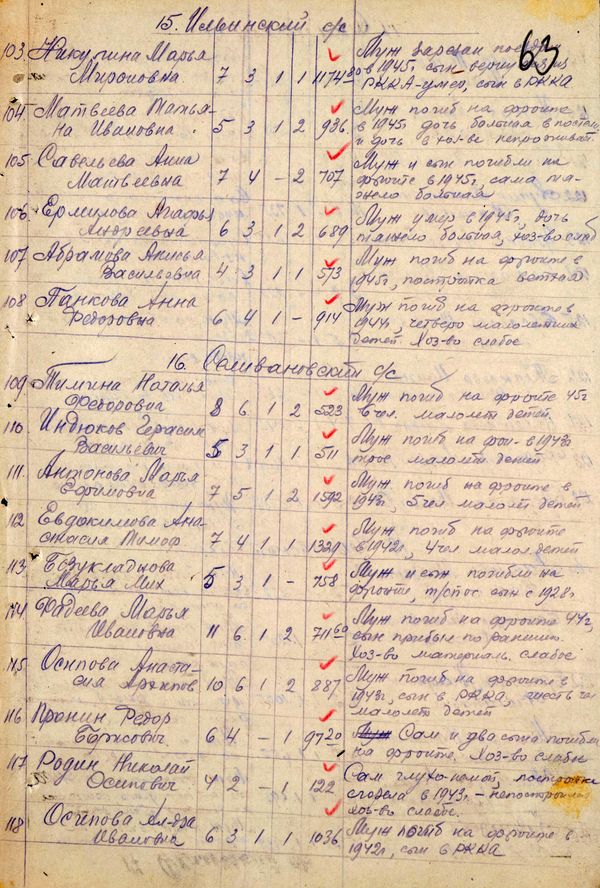 15. Ильинский с/с
63
103. Никулина Марья Муж зарезан поездом
Мироновна 7 3 1 1 1174 80 в 1945г, сын вернулся из
РККА-умер, сын в РККА
104 Матвеева Татья- Муж погиб на фронте
на Ивановна 5 3 1 2 986 в 1945г дочь больная в постели
и дочь в хоз-ве не проживает
105 Савельева Анна Муж и сын погибли на
Матвеевна 7 4 - 2 707 фронте в 1945г, сама тя-
жело больная
106. Ермилова Агафья Муж умер в 1945г, дочь
Андреевна 6 3 1 2 689 тяжело больная, хоз-во слаб
107 Абрамова Анисья Муж погиб на фронте в
Васильевна 4 3 1 1 573 1945г, постройка ветхая
108 Панкова Анна Муж погиб на фронте в
Федоровна 6 4 1 - 914 1944г, четверо малолетних
детей. Хоз-во слабое
16. Селивановский с/с
109 Тимина Наталья Муж погиб на фронте 45г
Федорович 8 6 1 2 523 чел. малолет детей
110 Индюков Герасим Муж погиб на фрон- в 1943г
Васильевич 5 3 1 1 511 трое малолет детей
111. Антонова Марья Муж погиб на фронте в
Ефимовна 7 5 1 2 1592 1943г, 5 чел малолет детей
112 Евдокимова Ана- Муж погиб на фронте
стасия Тимоф 7 4 1 1 1329 в 1942г, 4 чел малол детей
113 Безукладнова Муж и сын погибли на
Марья Мих 5 3 1 - 758 фронте, т/спос сын с 1928г.
114 Фадеева Марья Муж погиб на фронте 44г,
Ивановна 11 6 1 2 711 60 сын прибыл по ранению.
Хоз-во материаль. слабое
115 Осипова Анаста- Муж погиб на фронте в
сия Архипов 10 6 1 2 887 1943г, сын в РККА, шесть чел
малолет детей
116 Пронин Федор Сам и два сына погибли
Борисович 6 4 - 1 97 20 на фронте. Хоз-во слабое
117 Родин Николай Сам глухо-немой, постройка
Осипович 4 2 - 1 122 сгорела в 1943г. - непостроился
хоз-во слабое.
118 Осипова Ал-дра Муж погиб на фронте в
Ивановна 6 3 1 1 1036 1942г, сын в РККА